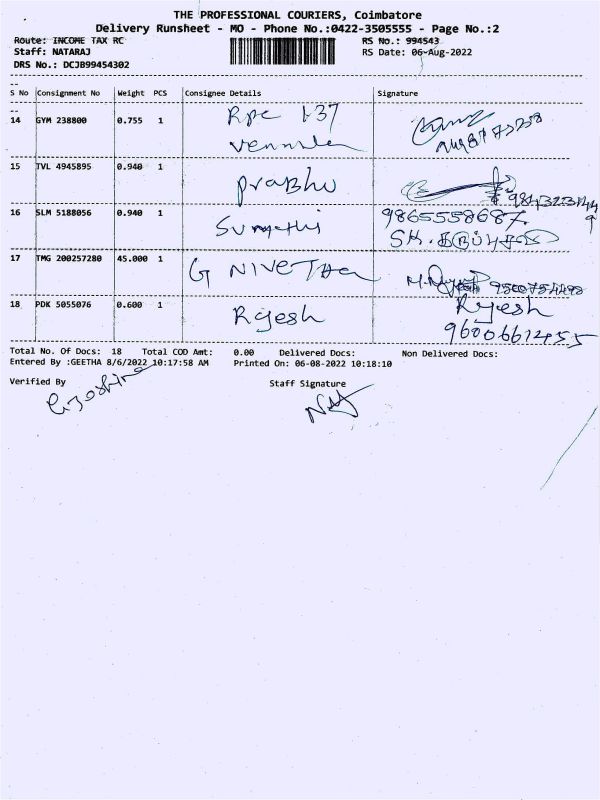 THE PROFESSIONAL COURIERS, Coimbatore
Delivery Runsheet - MO - Phone No.:0422-3505555 - Page No.:2
Route: INCOME TAX RC
RS No.: 994543
Staff: NATARAJ
RS Date: 06-Aug-2022
DRS No.: DCJB99454302
S No Consignment No Weight PCS Consignee Details Signature
14 GYM 238800 0.755 1 Rpc 1-37
15 TVL 4945895 0.940 1 Prabhu
16 SLM 5188056 0.940 1 Sumathi 9865558687
17 TMG 200257280 45.000 1 G NIVETHA
18 PDK 5055076 0.600 1 Rajesh Rajesh
Total No. Of Docs: 18 Total COD Amt: 0.00 Delivered Docs: Non Delivered Docs:
Entered By :GEETHA 8/6/2022 10:17:58 AM Printed On: 06-08-2022 10:18:10
Verified By Staff Signature